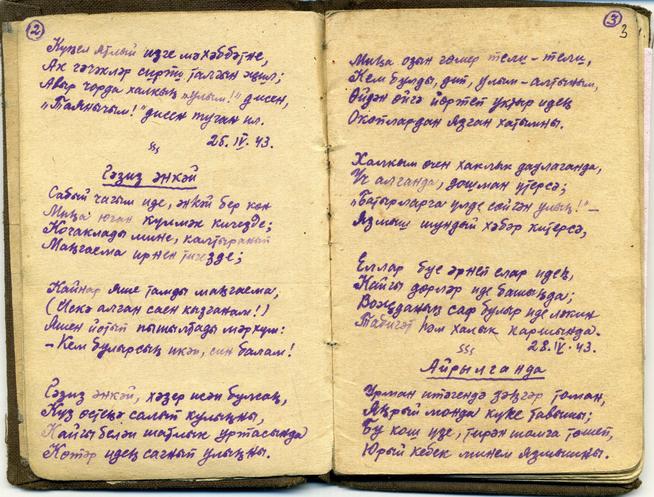 2
Күңел ятлый изге мәхәббәтне,
Ак чәчәкләр сиртти талгын җил;
Авыр чорда халкың „улым!" дисен,
„Таянычым!" дисен туган ил.
25.IV.43.
Газиз әнкәй
Сабый чагым иде, әнкәй бер көн
Миңа юган күлмәк кигезде;
Кочаклады мине, калтыранып
Маңгаема ирнен тигезде;
Кайнар яше тамды маңгаема,
(Искә алган саен кызганам!)
Яшен йотып пышылдады мәрхүм:
– Кем булырсың икән, син балам!
Газиз әнкәй, хәзер исән булсаң,
Күз өстеңә салып кулыңны,
Кайгы белән шатлык уртасында
Көтәр идең сагнып улыңны.
3
3
Миңа озын гомер тели-тели,
Кем булды, дип, улым-алтыным,
Өйдән өйгә йөртеп укыр идең
Окоплардан язган хатымны.
Халкым өчен хаклык даулаганда,
Үч алганда, дошман үтерсә;
„Батырларча үлде сөйгән улың!"–
Язмыш шундый хәбәр китерсә,
Еллар буе әрнеп елар идең,
Кайгы дөрләр иде башыңда;
Вөҗданың саф булыр иде ләкин
Табигать һәм халык каршында.
28.IV.43.
Айрылганда
Урман итәгендә зәңгәр томан,
Аңрый монда күке тавышы;
Бу кош үзе, тирән шомга төшеп,
Юрый кебек минем язмышны.